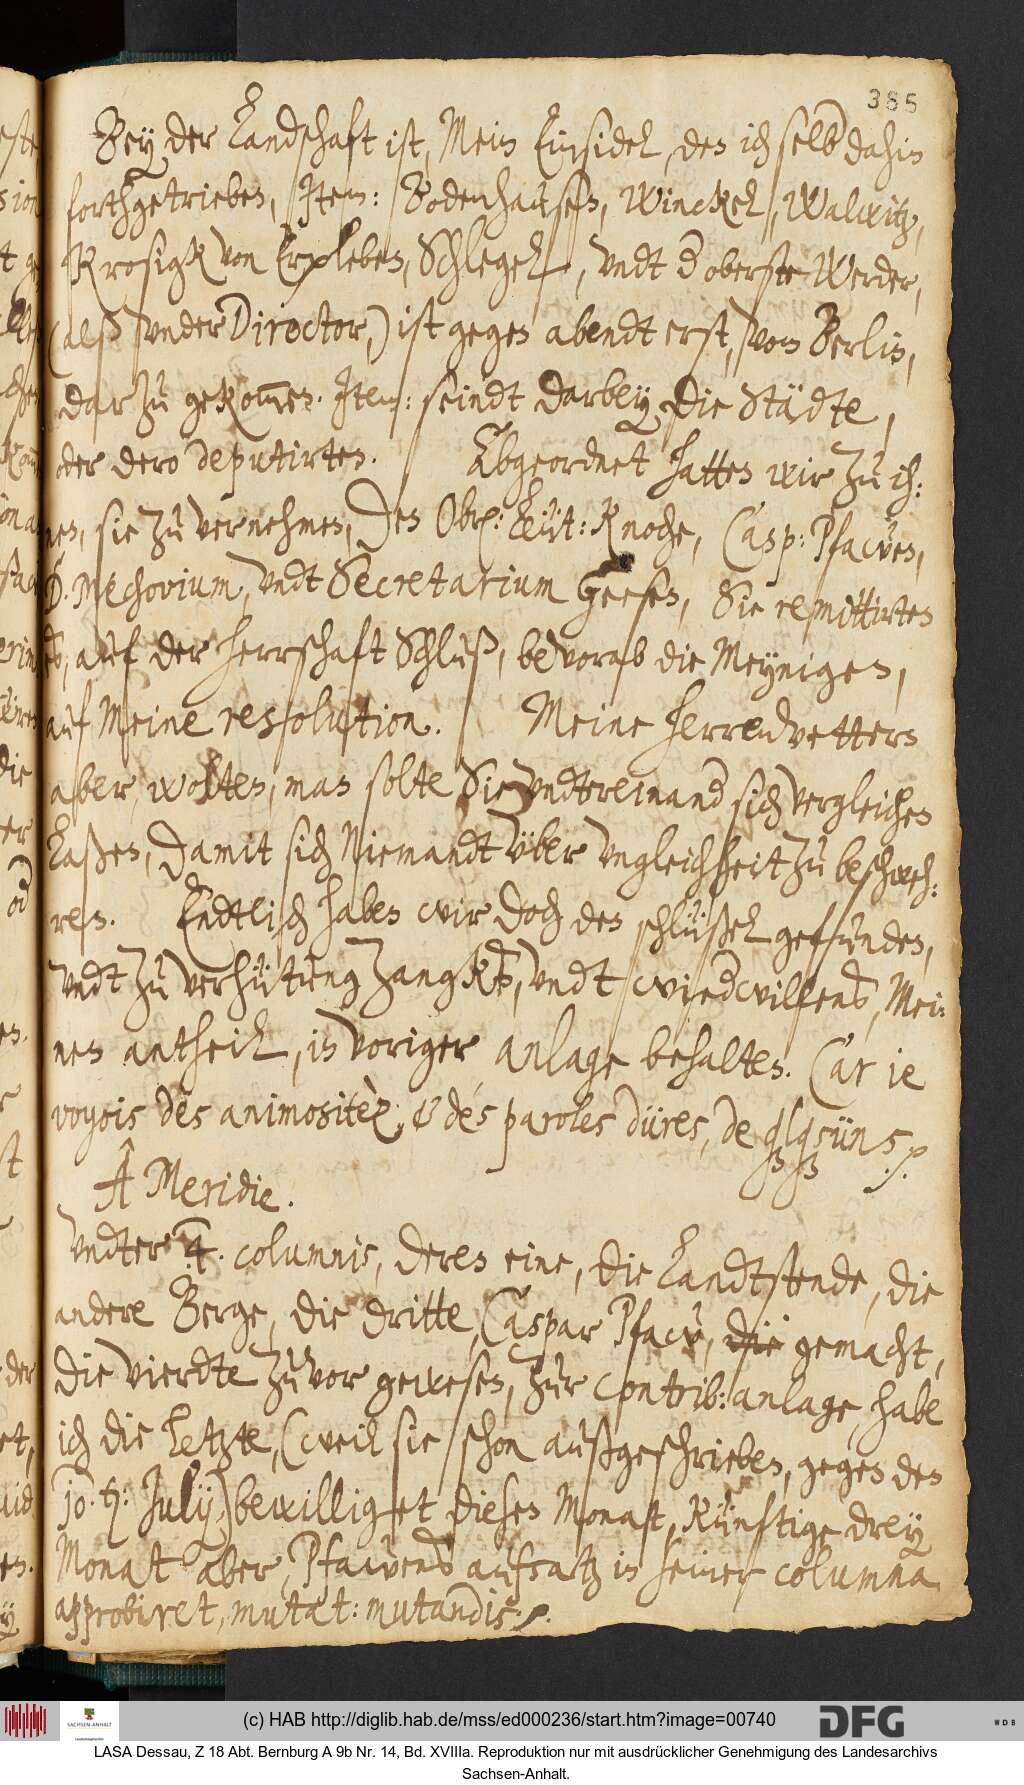 385
Bey der Landschaft ist, Mein Einsidel, den ich selbst dahin
forthgetrieben, Item: Bodenhausen, Winckel, Walwitz,
Krosigk von Erxleben, Schlegel, vndt der oberste Werder,
(alß vnder Director,) ist gegen abendt erst, von Berlin,
dar zu gekommen. Item: seindt darbey die Städte,
oder dero deputirten. Abgeordnet hatten wir zu ih:
nen, sie zu vernehmen, den Obr: Leüt: Knoche, Casp: Pfawen,
D. Mechovium, vndt Secretarium Geesen, Sie remittirten
es, auf der herrschaft Schluß, bevorab die Meynigen,
auf Meine resolution. Meine herrenvettern
aber, wolten, man solte Sie vndtereinander sich vergleichen
laßen, damit sich Niemandt über vngleichheit zu beschweh:
ren. Endtlich haben wir doch den schlüßel gefunden,
vndt zu verhütung Zangks, vndt wiederwillens, Mei:
nen antheil, in voriger anlage behalten. Car je
voyois dès animositèz, & dés paroles düres, de
A Meridie.
Vndter 4. columnis, deren eine, die Landtstende, die
andere Berge, die dritte, Caspar Pfaw, die gemacht,
die vierdte zuvor gewesen, zur contrib: anlage, habe
ich die letzte, (weil sie schon außgeschrieben, gegen den
10. h: July) bewilliget diesen Monat, Künftige drey
Monat aber, Pfawens aufsatz in seiner columna
approbiret, mutat: mutandis.
(c) HAB http://diglib.hab.de/mss/ed000236/start.htm?image=00740
SACHSEN-ANHALT
DFG
WDB
LASA Dessau, Z 18 Abt. Bernburg A 9b Nr. 14, Bd. XVIIIa. Reproduktion nur mit ausdrücklicher Genehmigung des Landesarchivs
Sachsen-Anhalt.